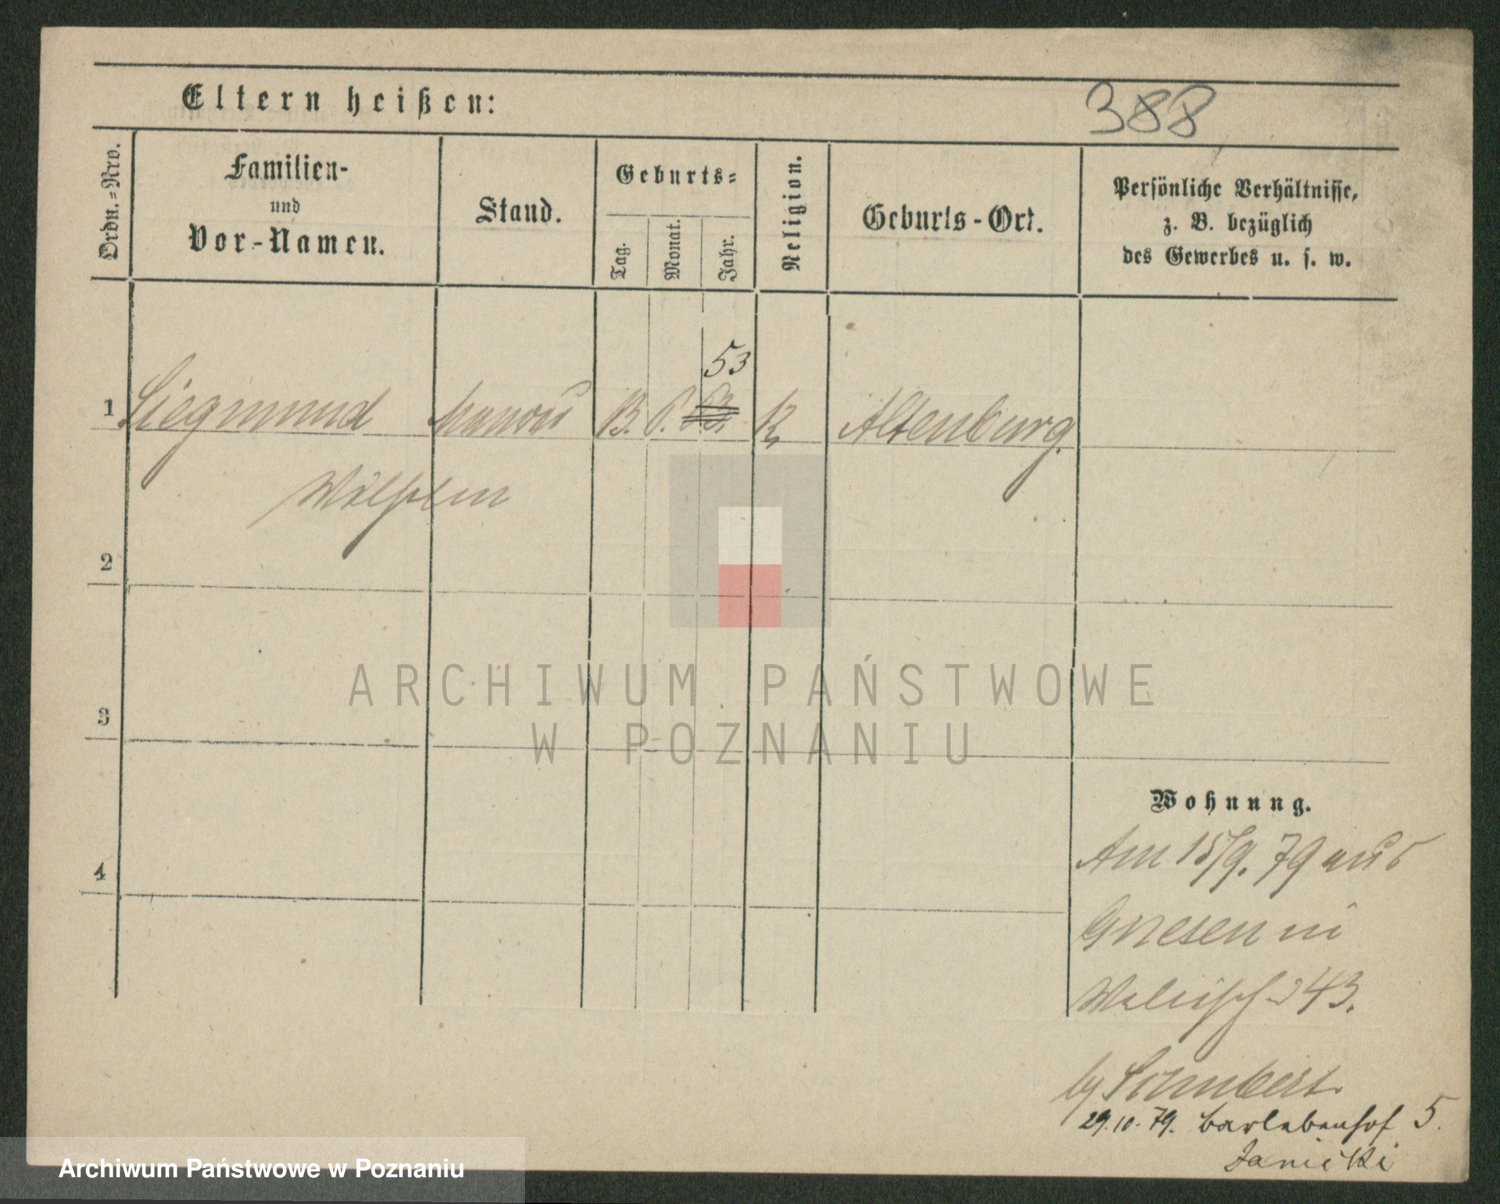 Eltern heißen:
388
Ordn.-Nro.
Familien-
und
Vor-Namen.
Stand.
Geburts-
Tag.
Monat.
Jahr.
Religion.
Geburts-Ort.
Persönliche Verhältnisse,
z. B. bezüglich
des Gewerbes u. s. w.
53
1 Siegmund Altenburg.
2
3
4
ARCHIWUM PAŃSTWOWE
W POZNANIU
Wohnung.
Am 15/9. 79 aus
Gnesen in
Wallisch 43.
29.10.79. Barlebenhof 5.
Janicki
Archiwum Państwowe w Poznaniu